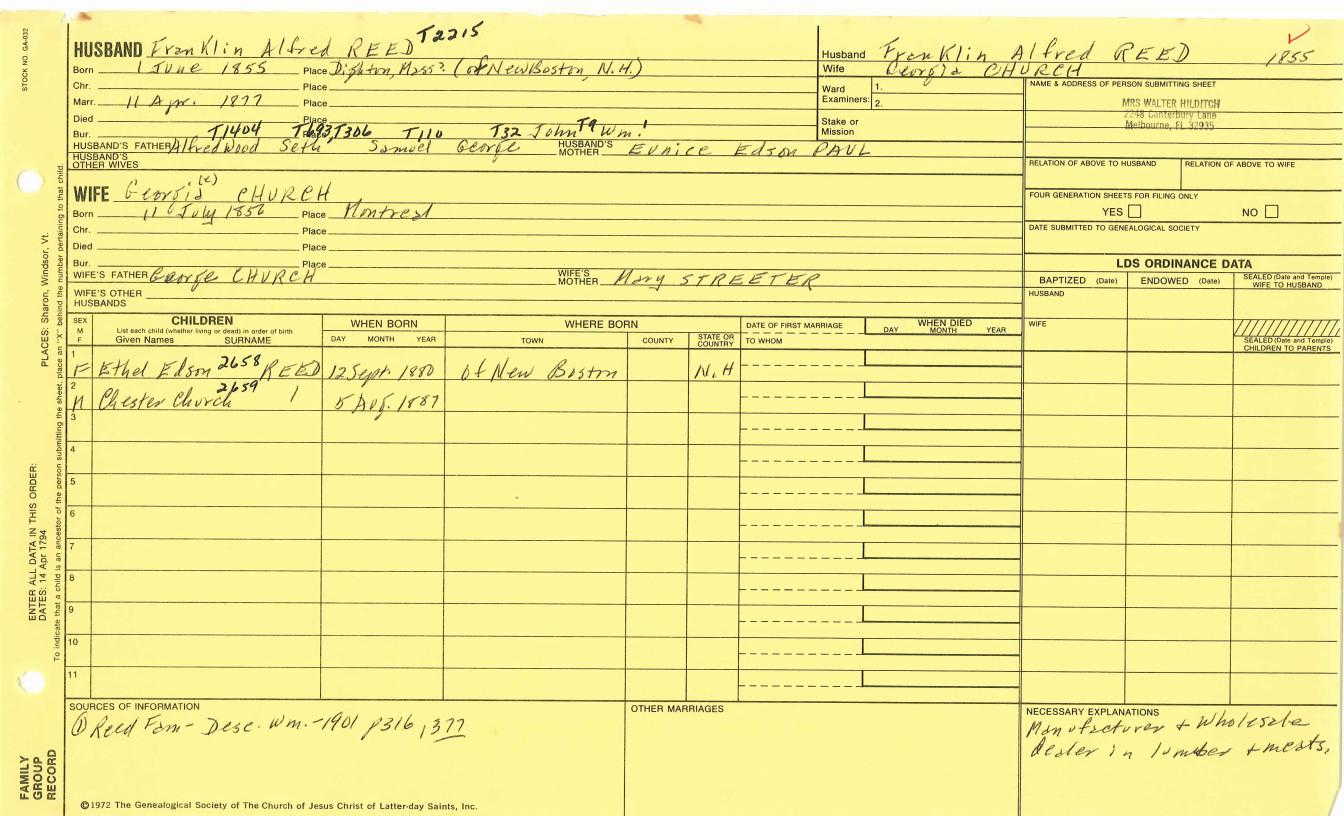 STOCK NO. GA-032
HUSBAND Franklin Alfred REED T2215
Born 1 June 1855 Place Dighton, Mass? (of New Boston, N.H.)
Chr. Place
Marr. 11 Apr. 1877 Place
Died Place
Bur. Place
T1404 T693 T306 T110 T32 John T9 Wm.1
HUSBAND'S FATHER Alfred Wood Seth Samuel George HUSBAND'S MOTHER Eunice Edson PAUL
HUSBAND'S OTHER WIVES
WIFE Georgia (e) CHURCH
Born 11 July 1856 Place Montreal
Chr. Place
Died Place
Bur. Place
WIFE'S FATHER George CHURCH WIFE'S MOTHER Mary STREETER
WIFE'S OTHER HUSBANDS
Husband Franklin Alfred REED 1855
Wife Georgia CHURCH
Ward Examiners: 1.
2.
Stake or Mission
NAME & ADDRESS OF PERSON SUBMITTING SHEET
MRS WALTER HILDITCH
2248 Canterbury Lane
Melbourne, FL 32935
RELATION OF ABOVE TO HUSBAND RELATION OF ABOVE TO WIFE
FOUR GENERATION SHEETS FOR FILING ONLY
YES NO
DATE SUBMITTED TO GENEALOGICAL SOCIETY
LDS ORDINANCE DATA
BAPTIZED (Date) ENDOWED (Date) SEALED (Date and Temple) WIFE TO HUSBAND
HUSBAND
WIFE
SEALED (Date and Temple) CHILDREN TO PARENTS
SEX M F CHILDREN WHEN BORN WHERE BORN DATE OF FIRST MARRIAGE WHEN DIED
List each child (whether living or dead) in order of birth
Given Names SURNAME DAY MONTH YEAR TOWN COUNTY STATE OR COUNTRY TO WHOM DAY MONTH YEAR
1 F Ethel Edson 2658 REED 12 Sept. 1880 of New Boston N.H
2 M Chester Church 2659 1 5 Aug. 1887
3
4
5
6
7
8
9
10
11
SOURCES OF INFORMATION
① Reed Fam- Desc. Wm.-1901 p316, 377
OTHER MARRIAGES
NECESSARY EXPLANATIONS
Manufacturer + Wholesale
Dealer in lumber + meats,
©1972 The Genealogical Society of The Church of Jesus Christ of Latter-day Saints, Inc.
FAMILY GROUP RECORD
ENTER ALL DATA IN THIS ORDER:
DATES: 14 Apr 1794
PLACES: Sharon, Windsor, Vt.
To indicate that a child is an ancestor of the person submitting the sheet, place an "X" behind the number pertaining to that child.